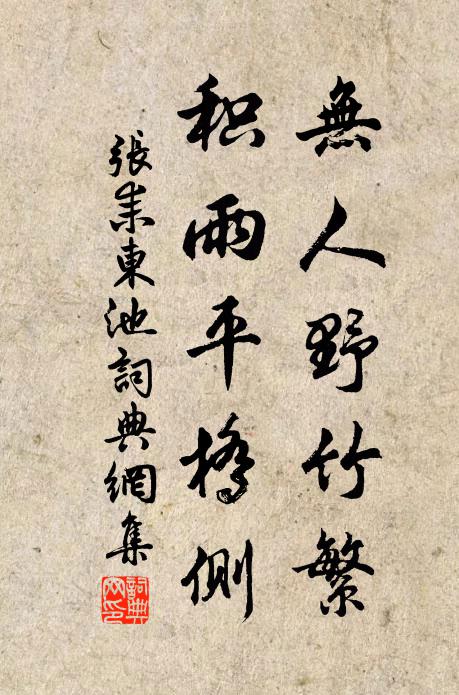 無人野竹繁
积雨平橋側
張耒東池詞典網集
詞典网印